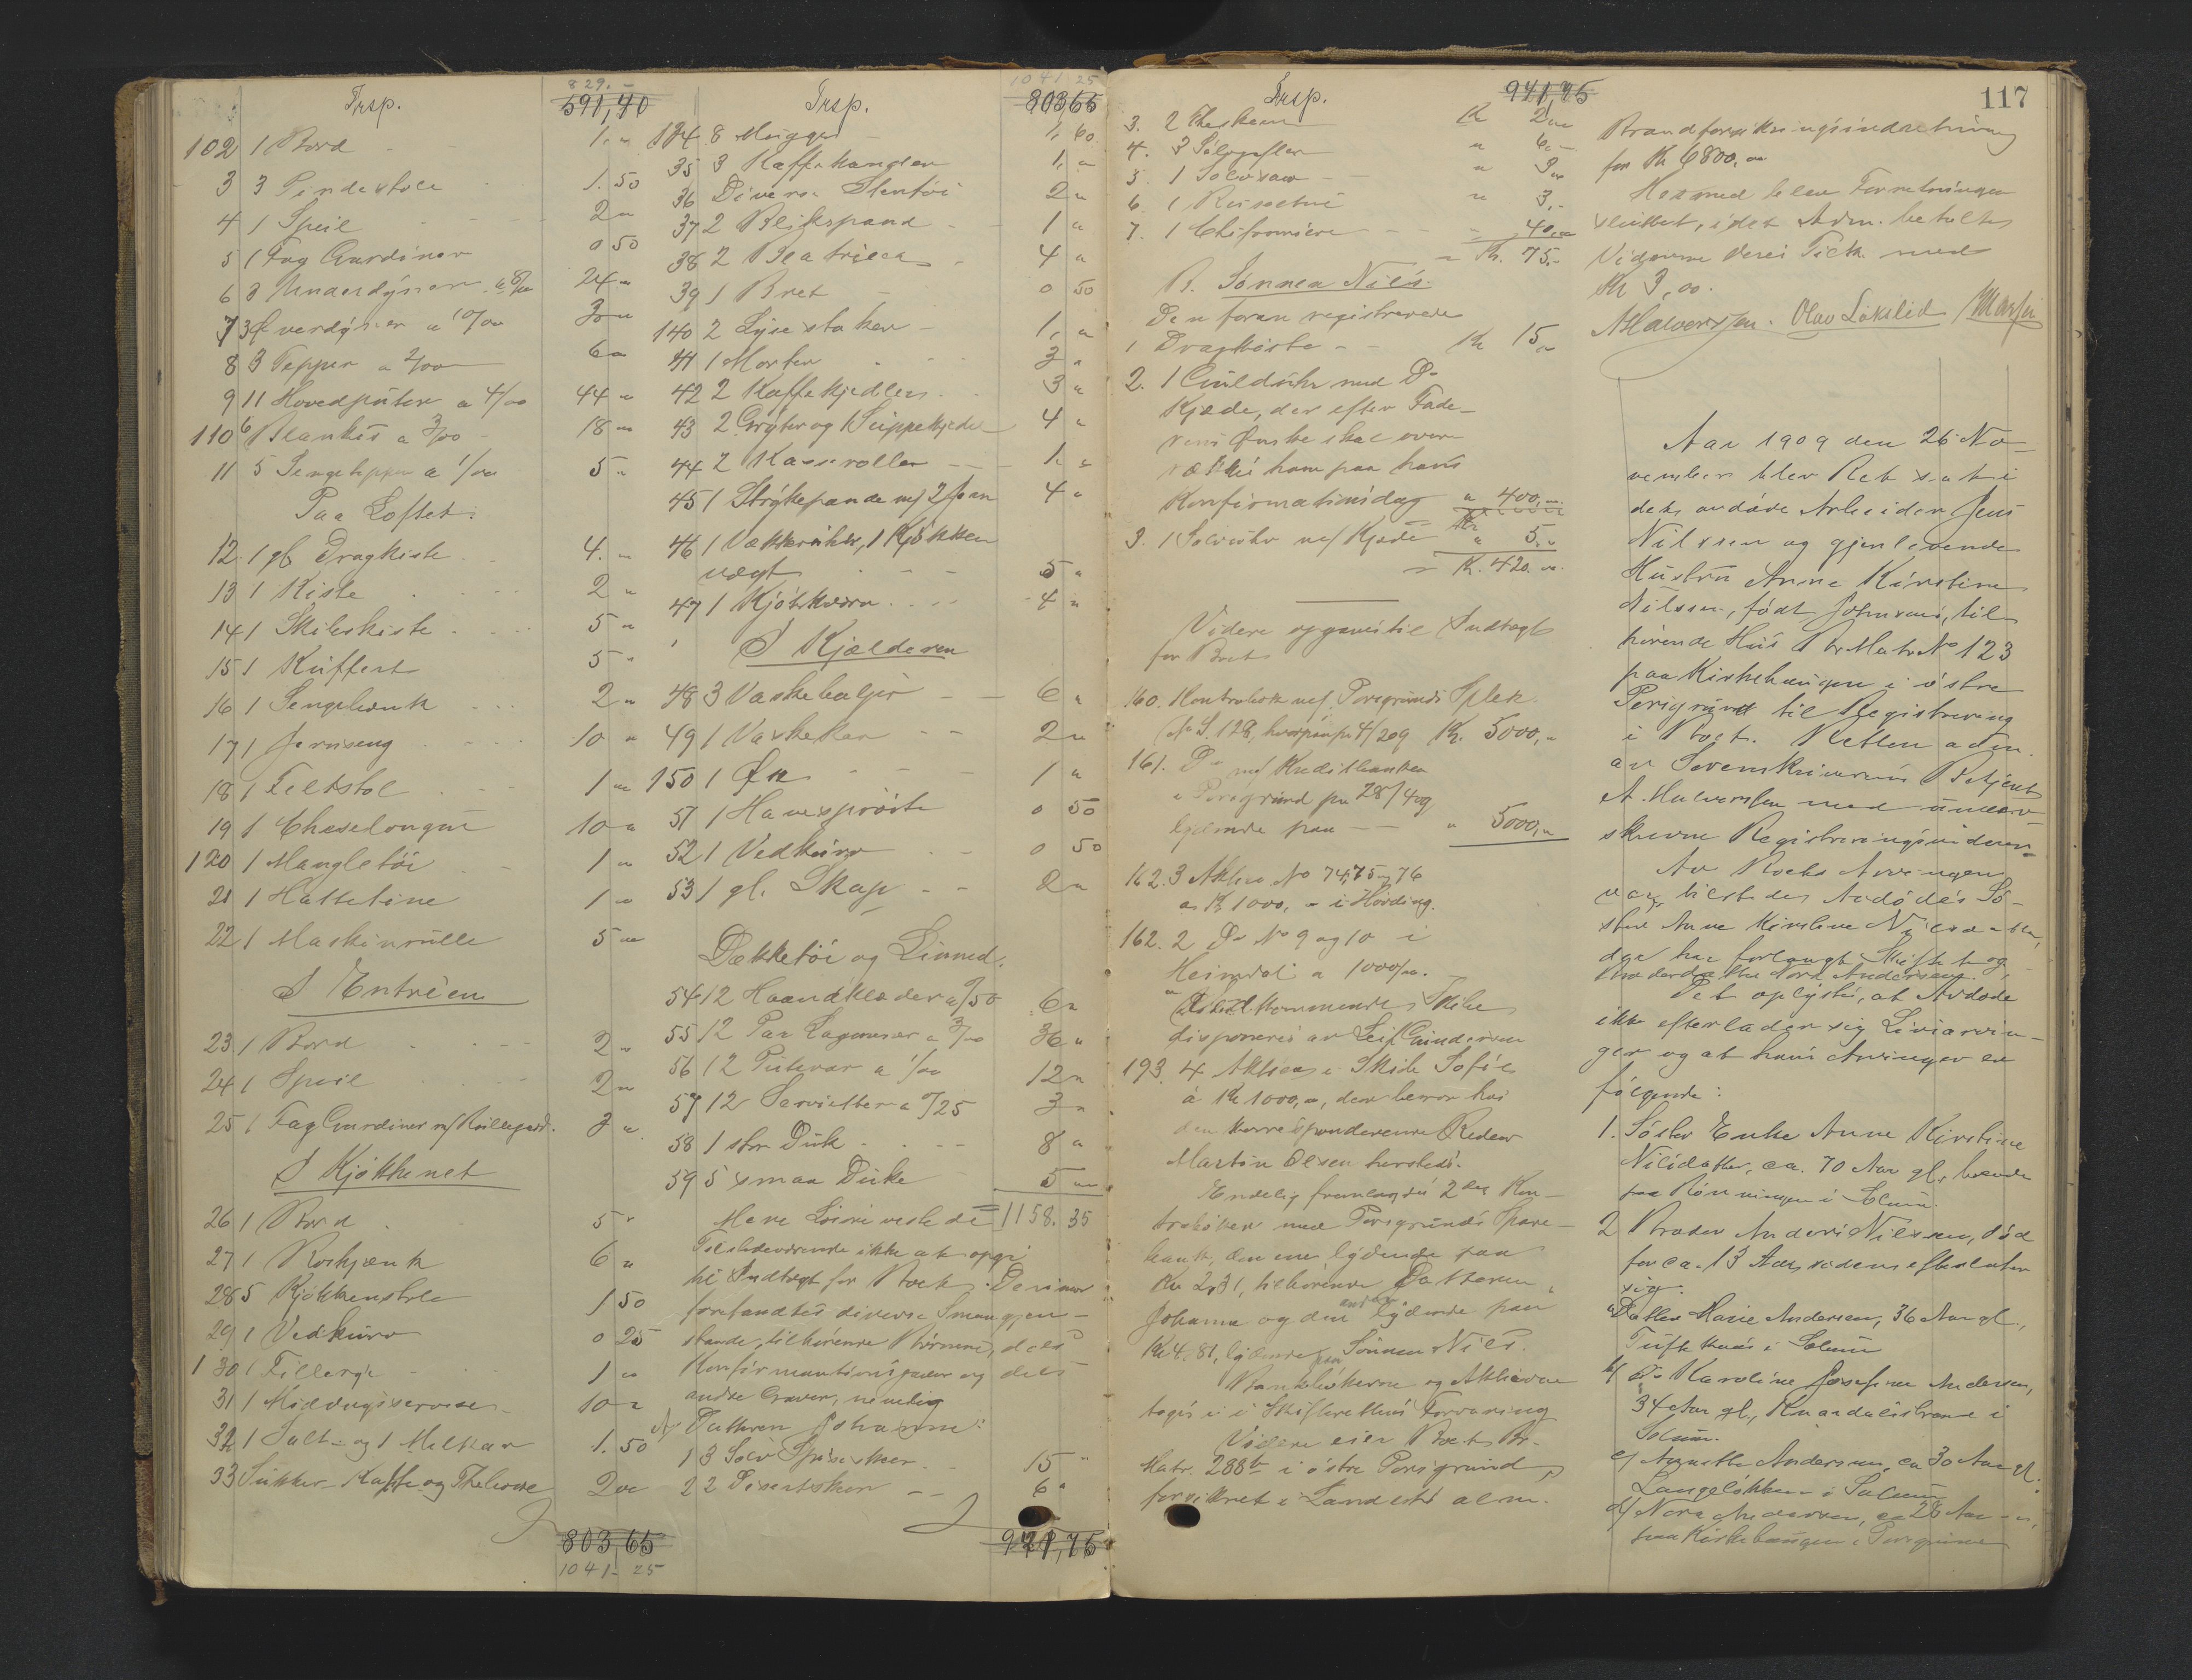 829.-
Trsp. 591,40
102 1 Bord 1. "
3 3 Pindestole 1. 50
4 1 Speil 2 "
5 1 Fag Gardiner 0 50
6 3 Underdyner a 8/00 24 "
7 3 Overdyner a 10/00 30 "
8 3 Tepper a 2/00 6 "
9 11 Hovedputer a 4/00 44 "
110 6 Blankis a 3/00 18 "
11 5 Sengetepper a 1/00 5 "
Paa Loftet.
12 1 gl Dragkiste 4. "
13 1 Kiste 2 "
14 1 Skibskiste 5 "
15 1 Kuffert 5 "
16 1 Sengebænk 2 "
17 1 Jernseng 10 "
18 1 Feltstol 1 "
19 1 Cheselongue 10 "
120 1 Mangletöi 1 "
21 1 Hattetine 1 "
22 1 Maskinrulle 5 "
I Entréen
23 1 Bord 2 "
24 1 Speil 2 "
25 1 Fag Gardiner m/ Rullegard. 3 "
I Kjökkenet
26 1 Bord 5 "
27 1 Bænk 6 "
28 5 Kjökkenstole 1 50
29 1 Vedkurv 0 25
130 1 Fillerye 1 "
31 1 Middagsservise 10 "
32 1 Salt- og 1 Melkar 1. 50
33 Sukker- Kaffe og Theboxe 2 "
803,65
1041 25
1041 25
Trsp. 803,65
134 8 Mugger 1, 60
35 3 Kaffekander 1, "
36 Diverse Stentöi 2 "
37 2 Blikspand 1 "
38 2 4 "
39 1 Bret 0 50
140 2 Lysestaker 1, "
41 1 Morter 3 "
42 2 Kaffekjedler 3 "
43 2 Gryter og 1 Suppekjedel 4 "
44 2 Kasseroller 1. "
45 1 Strykepande m/ 2 Jern 4 "
46 1 Vækkeruhr, 1 Kjökken
vægt 5 "
47 1 Kjötkværn 4 "
I Kjælderen
48 3 Vaskebaljer 6 "
49 1 Vaskekar 2 "
150 1 Öx 1 "
51 1 Havespröite 0 50
52 1 Vedkurv 0 50
53 1 gl. Skap 2 "
Dækketöi og Linned.
54 12 Haandklæder a 0/50 6 "
55 12 Par Lagener a 3/00 36 "
56 12 Putevar a 1/00 12 "
57 12 Servietter a 0/25 3 "
58 1 stor Duk 8 "
59 5 smaa Duke 5 "
Mere Lösöre vidste de 1158. 35
Tilstedeværende ikke at opgi
til Indtægt for Boet. Derimod
forefandtes diverse Smaagjen-
stande, tilhörende Börnene, dels
Konfirmantionsgaver og dels
andre Gaver, nemlig
A/ Datteren Johanne:
1 3 Sölv Spiseskeer 15 "
2 2 Desertskeer 6 "
941,75
Trsp. 941,75
3. 2 Theskeer K 2 "
4. 3 Sölvgafler " 6. "
5. 1 " 3 "
6. 1 " 3, -
7. 1 Chifoniere 40, "
= K. 75. -
B. Sönnen Nils.
Den foran registrerede
1 Dragkiste K 15 "
2. 1 Guldúhr med Do
Kjæde, der efter Fade-
rens Önske skal over
rækkes ham paa hans
Konfirmationsdag " 400, "
3. 1 Sölvuhr m/ Kjæde " 5. "
= K. 420. "
Videre opgaves til Indtægt
for Boet:
160. Kontrabok m/ Porsgrunds Spbk.
No S. 128, hvorpaa pr 4/2 09 K. 5000, "
161. Do m/ Kreditbanken
i Porsgrund pr 28/4 09
lydende paa " 5000, "
162. 3 Aktier No 74, 75 og 76
a K 1000, " i Hövding.
162. 2 Do No 9 og 10 i
Heimdal a 1000/00.
vedkommende Skibe
disponeres av Leif Gundersen
193. 4 Aktier i Skib Sofie
á K 1000, ", der beror hos
den korresponderende Reder
Martin Olsen hersteds.
Endelig fremlagdes 2de Kon-
traböker med Porsgrunds Spare-
bank, den ene lydende paa
Kr 2,31, tilhörende Datteren
Johanna og den anden lydende paa
Kr 4,81, lydende paa Sönnen Nils.
Bankbökerne og Aktierne
toges i Skifterettens Forvaring
Videre eier Boet Br.
Matr. 288b i östre Porsgrund,
forsikret i Landets alm.
117
Brandforsikringsindretning
for Kr 6800, 00
Hermed blev Forretningen
sluttet, idet Adm. betalte
Vidnerne deres Tilk. med
Kr 3,00.
AHalvorsen. Olav Likslid
Aar 1909 den 26 No-
vember blev Ret sat i
det avdöde Arbeider Jens
Nilssen og gjenlevende
Hustru Anne Kirstine
Nilssen, födt Johnsens, til
hörende Hus Br Matr No 123
paa Kirkehaugen i östre
Porsgrund til Registrering
i Boet. Retten adm.
av Sorenskriverens Betjent
A. Halvorsen med under-
skrevne Registreringsvidner.
Av Boets Arvinger
var tilstede Avdödes Sö-
ster Anne Kirstine Nilsdatter,
der har forlangt Skifte og
Broderdatter Nora Andersen.
Det oplystes, at Avdöde
ikke efterlader sig Livsarvin-
ger og at hans Arvinger er
fölgende:
1. Söster Enke Anne Kirstine
Nilsdatter, ca. 70 Aar gl., boende
paa Rönningen i Solum.
2 Broder Anders Nilssen, död
for ca. 13 Aar siden efterlater
sig.
a) Datter Marie Andersen, 36 Aar gl.,
Tuftenæs i Solum
b) Do Karoline Josefine Andersen,
34 Aar gl., Knardalstrand i
Solum.
c) Annette Andersen, ca 30 Aar gl.
Langelökken i Solum
d) Nora Andersen, ca 28 Aar
paa Kirkehaugen i Porsgrund